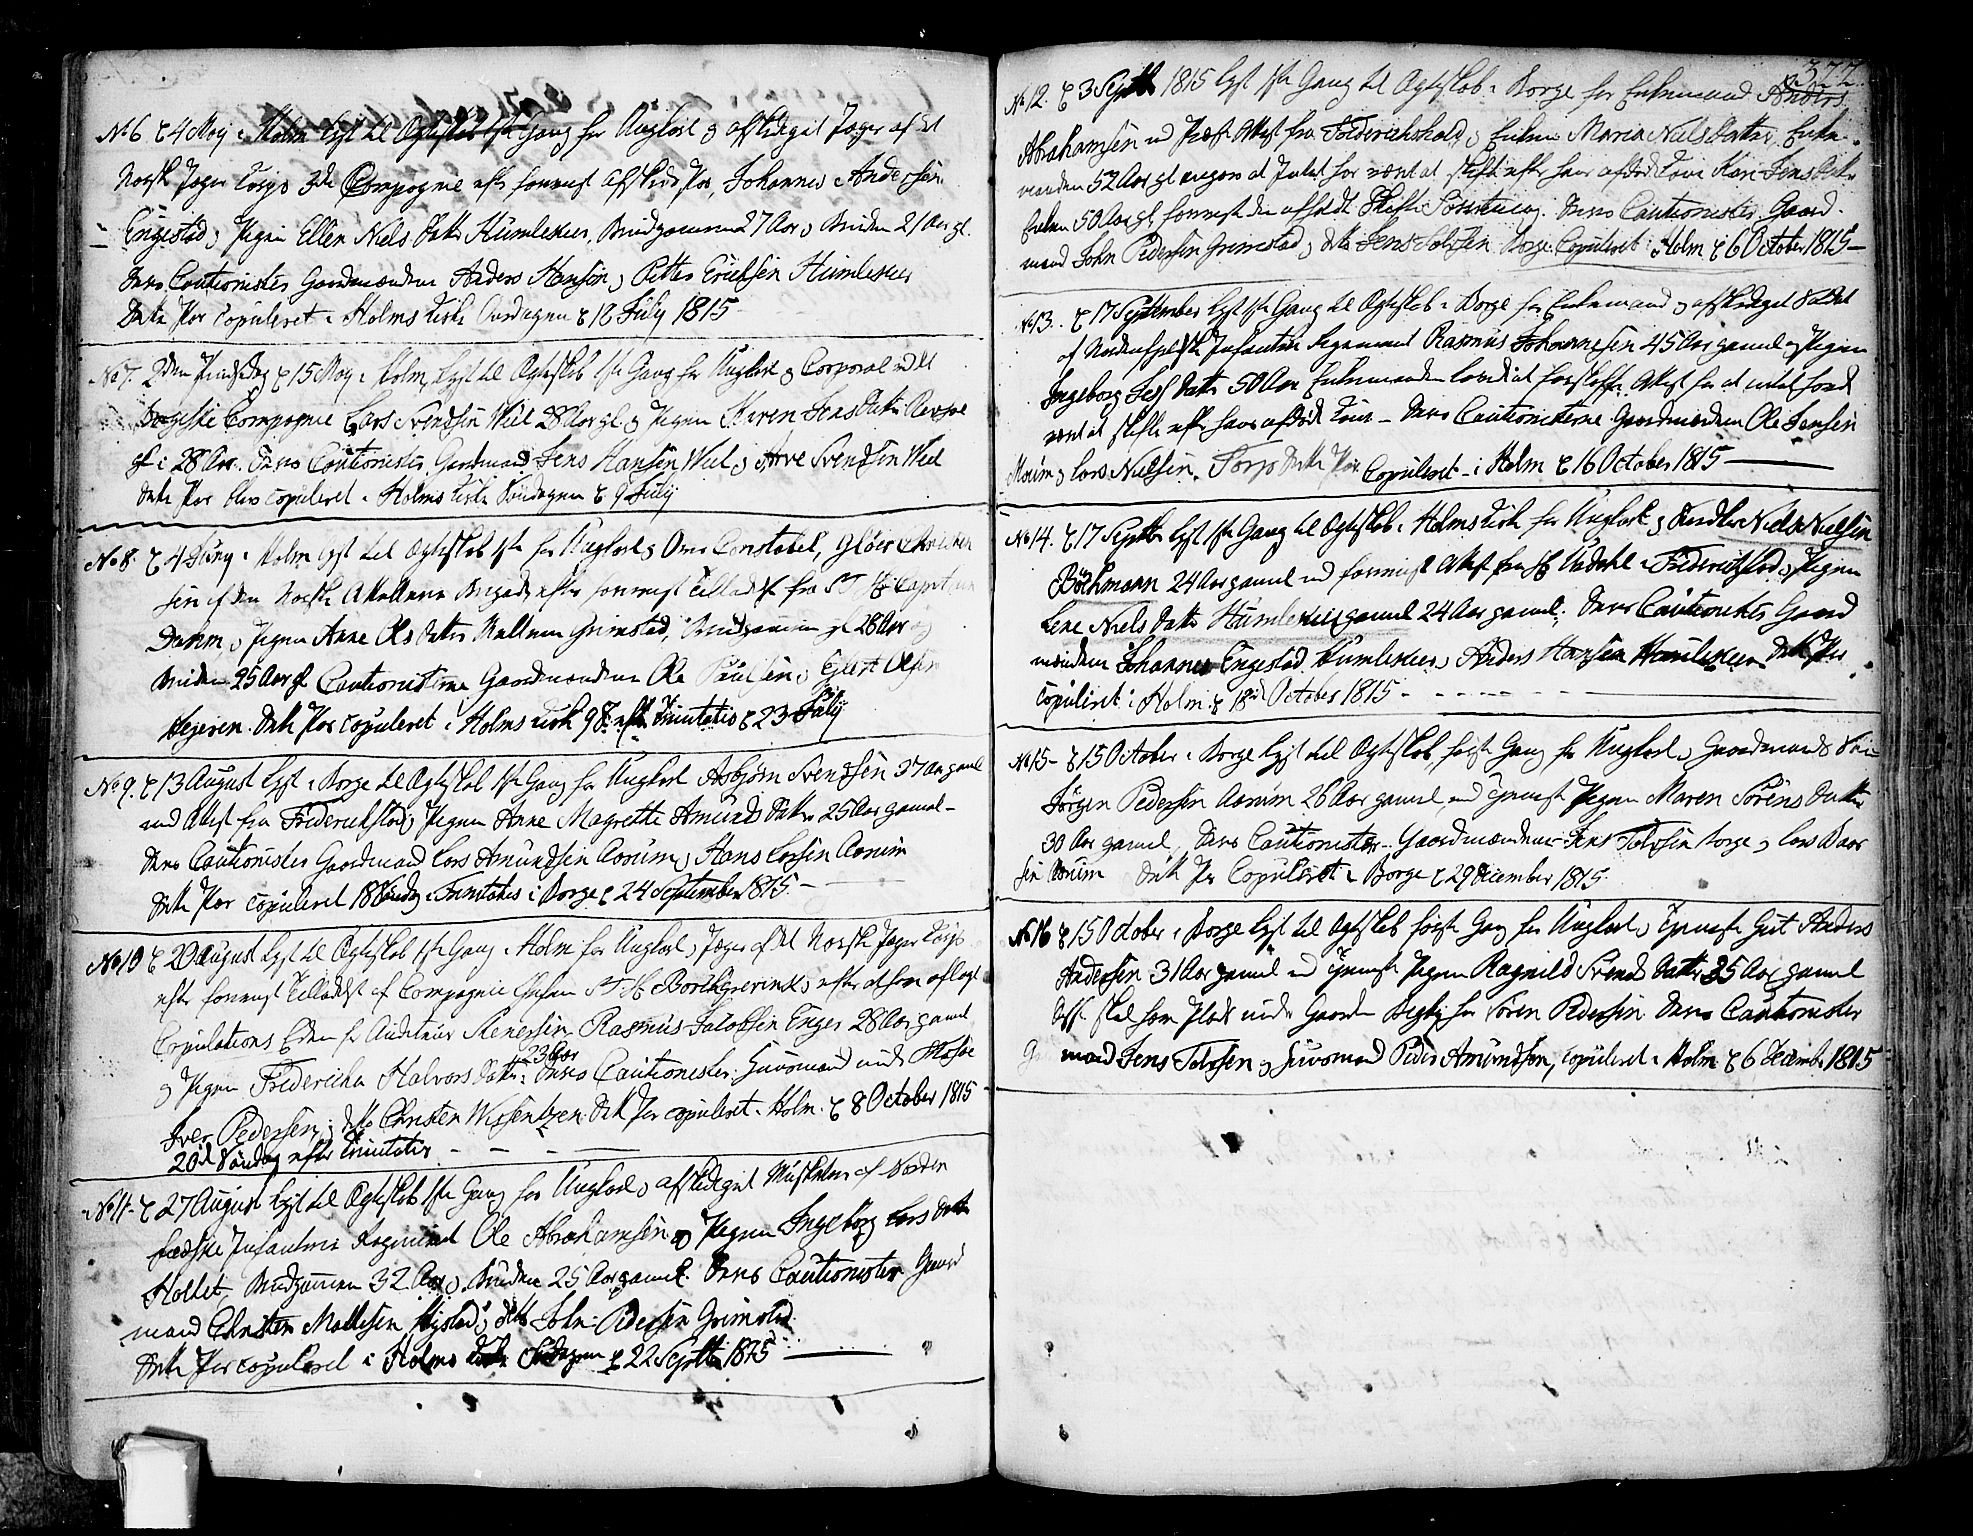 No 6. d 4 May i Holm lyst til Ægteskab 1ste Gang for Ungkarl og afskediget Jæger af det
Norske Jæger Corps 3die Compagnie efter forevist Afskeds Pas, Johannes Andersen
Engestad og Pigen Ellen Niels Datter Humlekier, Brudgommen 27 Aar og Bruden 21 Aar gl.
Deres Cautionister Gaardmændene Anders Hansen og Petter Erichsen Humlekier
Dette Par copuleret i Holms Kirke Onsdagen d 12 July 1815
No 7. 2den Pindsedag d 15 May i Holm, lyst til Ægteskab 1ste Gang for Ungkarl og Corporal ved det
Compagnie Lars Svendsen Weel 28 Aar gl og Pigen Karen Jens Datter
gl i 28 Aar. Deres Cautionister Gaardmand Jens Hansen Weel og Arve Svendsen Weel
Dette Par blev copuleret i Holms Kirke Søndagen d 9 July
No 8. d 4 Juny i Holm lyst til Ægteskab 1ste for Ungkarl og Over Constabel, Gløer Christen
sen af den Norske Artillerie Brigade efter forevist Tilladelse fra S.T. Hr Capitain
Damm, og Pigen Anne Ols Datter Grimstad, Brudgommen gl 28 Aar og
Bruden 25 Aar gl Cautionisterne Gaardmændene Ole Paulsen og Ejlert Olsen
Begeren. Dette Par copuleret i Holms Kirke 9 S. eft Trinitatis d 23 July
No 9. d 13 August lyst i Borge til Ægteskab 1ste Gang for Ungkarl Asbjørn Svendsen 37 Aar gamel
med Attest fra Friderichstad og Pigen Anne Magrette Amunds Datter 25 Aar gamel -
Deres Cautionister Gaardmand Lars Amundsen Aarum og Hans Larsen Aarum
Dette Par copuleret 18 Søndag e Trinitatis i Borge d 24 September 1815 -
No 10 d 20 August lyst til Ægteskab 1ste Gang i Holm for Ungkarl og Jæger af det Norske Jæger Corps
efter forevist Tilladelse af Compagnie Chefen S.T. Hr Borchgrevink og efter at have aflagt
Copulations Eden for Auditeur Stenersen Rasmus Jacobsen Enger 28 Aar gamel
23 Aar
og Pigen Fredericha Halvors Datter. Deres Cautionister. Huusmand under Mosse
Iver Pedersen og ditto Christen Wissentzen. Dette Par copuleret i Holm d 8 October 1815
20de Søndag efter Trinitatis - - -
No 11. d 27 August lyst til Ægteskab 1ste Gang for Ungkarl og afskediget Musketeer af Norden
fieldske Infanterie Regiment Ole Abrahamsen og Pigen Ingeborg Lars Datter
Hollet, Brudgommen 32 Aar og Bruden 25 Aar gamel. Deres Cautionister Gaard
mand Christen Mathisen og ditto John Pedersen Grimstad
Dette Par copuleret i Holms Kirke d 22 Septbr 1815
377
No 12. d 3 Septbr 1815 lyst 1ste Gang til Ægteskab i Borge for Enkemand Anders
Abrahamsen med Præste Attest fra Friderichshald og Enken Maria Niels Datter, Enke
manden 52 Aar gl angav at Intet har været at skifte efter hans afdøde Kone Kari Jens Datter
Enken 50 Aar gl forevist den afholdt Skifte Forretning. Deres Cautionister Gaard
mand John Pedersen Grimstad og ditto Jens Tolvsen Borge Copuleret i Holm d 6 October 1815 -
No 13. d 17 September lyst 1ste Gang til Ægteskab i Borge for Enkemand og afskediget Soldat
af Nordenfjelske Infanterie Regiment Rasmus Johannesen 45 Aar gamel og Pigen
Ingeborg Datter 50 Aar Enkemanden lovede at forskaffe Attest for at intet havde
været at skifte efter hans afdøde Kone - Deres Cautionisterne Gaardmændene Ole Jensen
Moum og Lars Nielsen Torp Dette Par Copuleret - i Holm d 16 October 1815
No 14. d 17 Septbr lyst 1ste Gang til Ægteskab i Holms Kirke for Ungkarl og Niels Nielsen
Böthmann 24 Aar gamel med forevist Attest fra Hr Urdahl i Friderichstad og Pigen
Lene Niels Datter Humlekier gamel 24 Aar gamel. Deres Cautionister Gaard
mændene Johannes Engestad Humlekier og Anders Hansen Humlekier Dette Par
copuleret i Holm d 18de October 1815 - - - -
No 15 - d 15 October i Borge lyst til Ægteskab første Gang for Ungkarl og Gaardmands Søn
Jørgen Pedersen Aarum 26 Aar gamel, med tjeneste Pigen Maren Sørens Datter
30 Aar gamel, Deres Cautionister - Gaardmændene Jens Tolvsen Borge og Lars Baar
sen Aarum Dette Par Copuleret i Borge d 29 December 1815.
No 16 d 15 October i Borge lyst til Ægteskab første Gang for Ungkarl og Tjeneste Gut Anders
Andersen 31 Aar gamel med tjeneste Pigen Ragnild Svends Datter 25 Aar gamel
skal have Plads under Gaarden Begby hos Søren Pedersen Deres Cautionister
mand Jens Tolvsen og Huusmand Peder Amundsen, copuleret i Holm d 6 December 1815